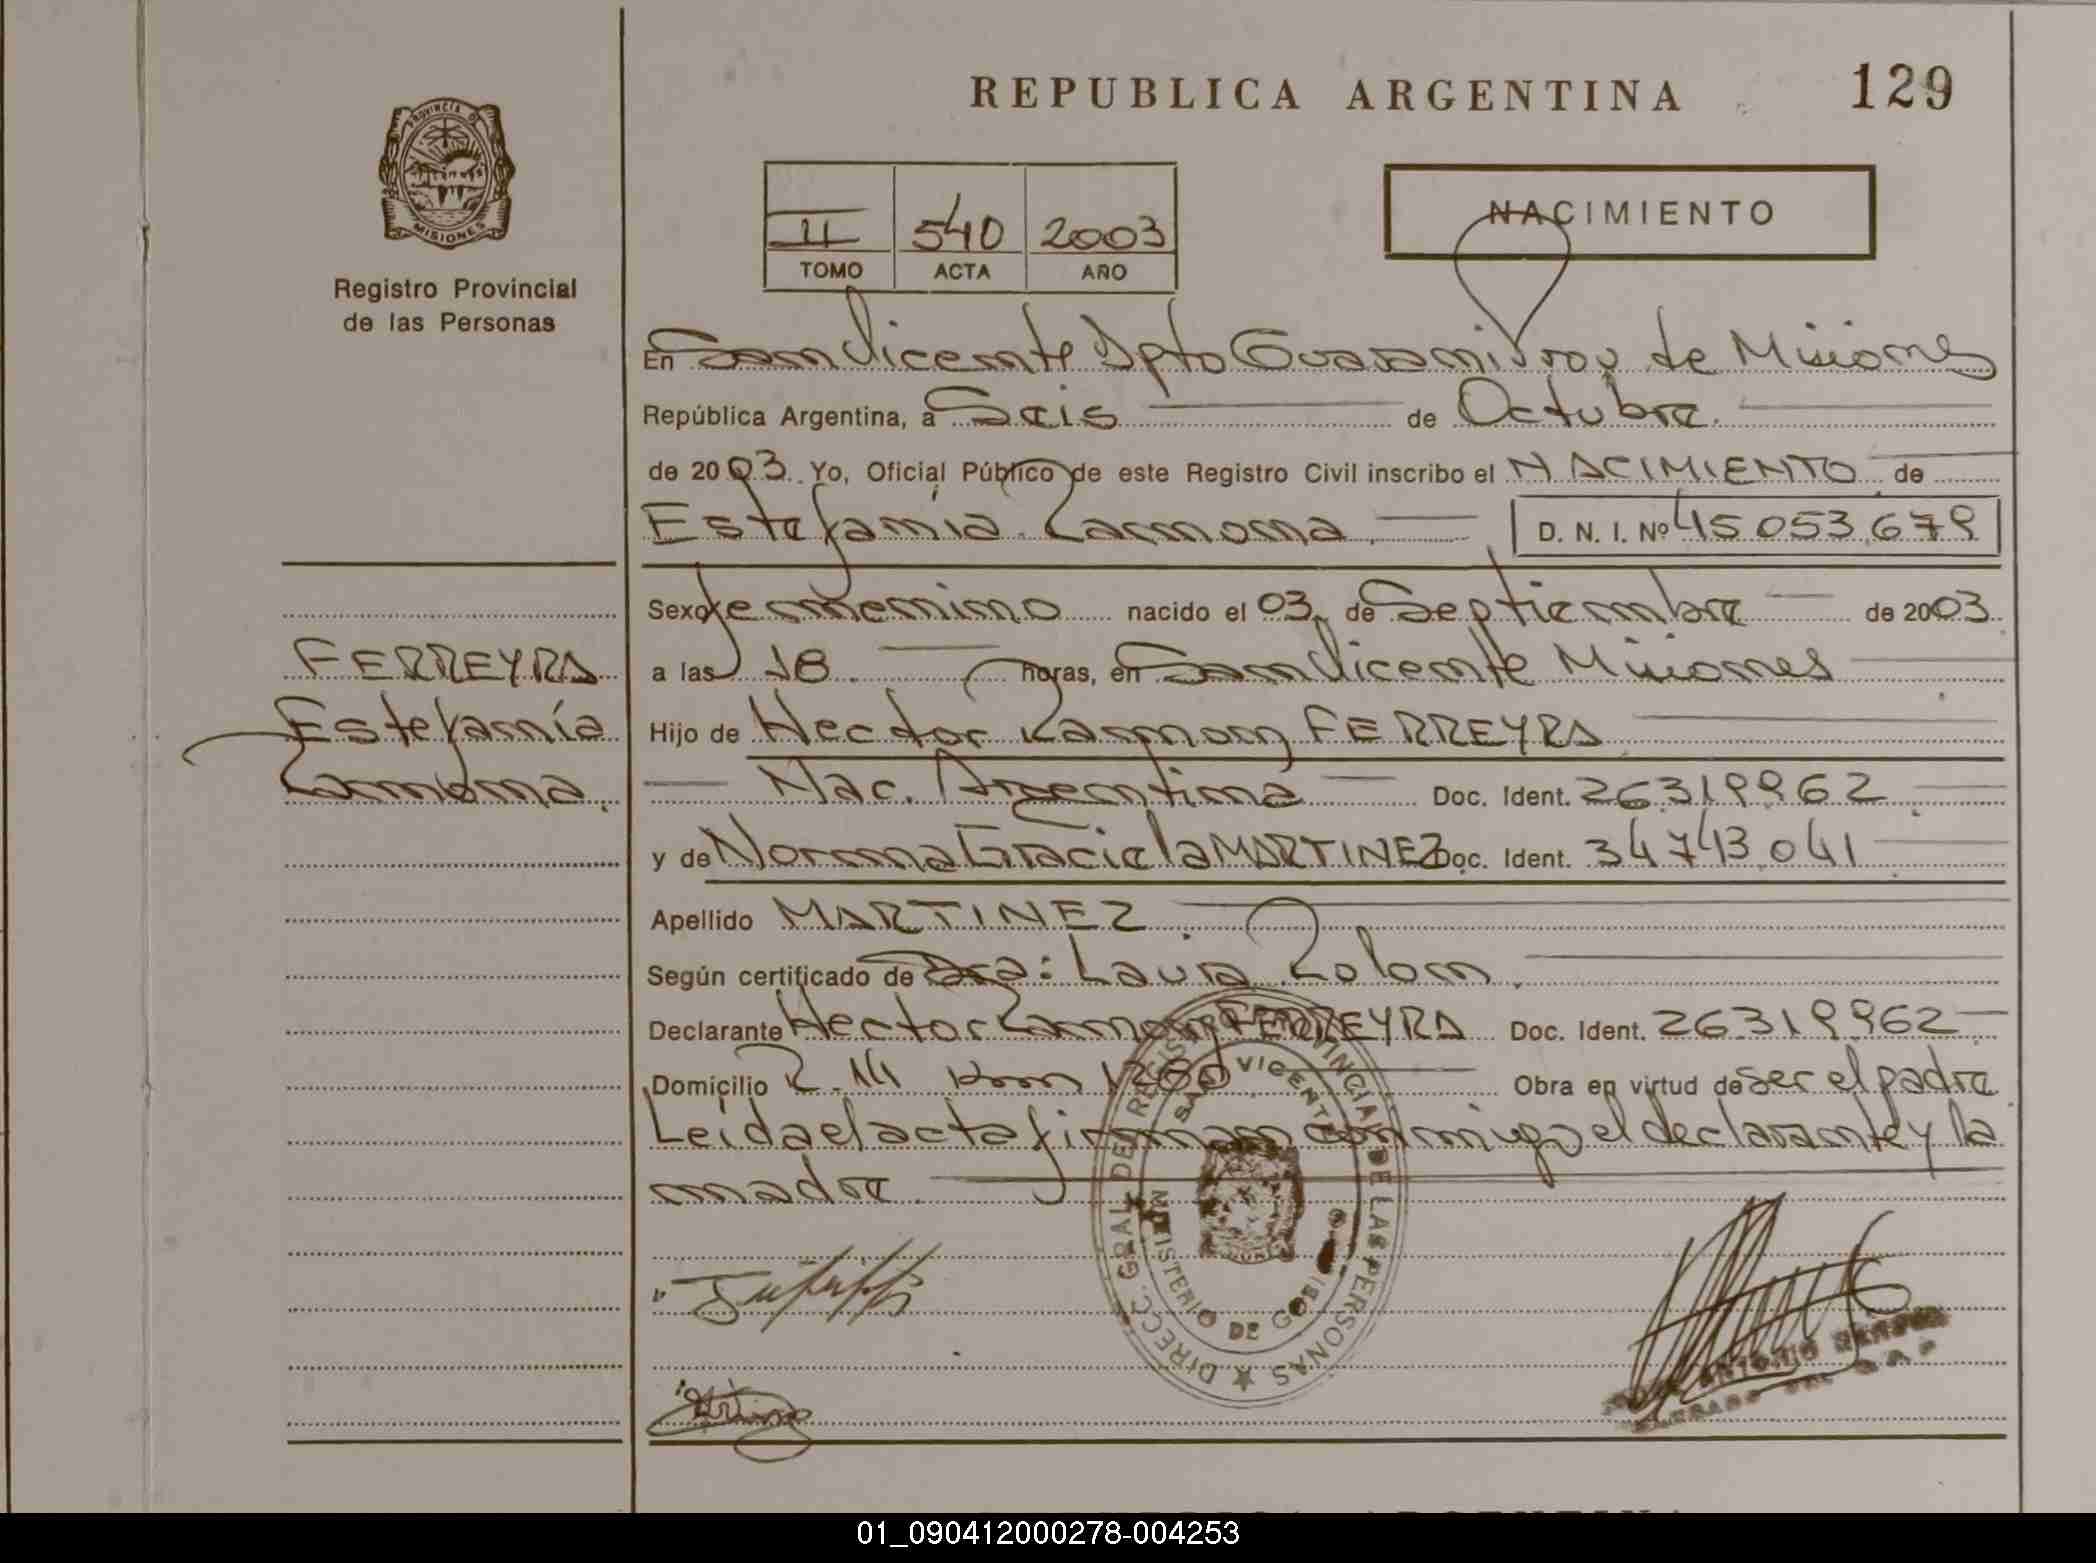 REPUBLICA ARGENTINA 129
PROVINCIA DE
MISIONES
Registro Provincial
de las Personas
II 540 2003
TOMO ACTA AÑO
NACIMIENTO
En San Vicente Dpto Guarani Prov de Misiones
República Argentina, a Seis de Octubre.
de 2003. Yo, Oficial Público de este Registro Civil inscribo el NACIMIENTO de
Estefanía Ramona. D. N. I. Nº 45 053 679
Sexo femenino nacido el 03 de Septiembre de 2003
a las 18. horas, en San Vicente Misiones
Hijo de Hector Ramon FERREYRA
Nac. Argentina Doc. Ident. 26319962
y de Norma Graciela MARTINEZ Doc. Ident. 34743041
Apellido MARTINEZ
Según certificado de Dra: Laura Rolon.
Declarante Hector Ramon FERREYRA Doc. Ident. 26319962
Domicilio R. 14 Km 1260 Obra en virtud de ser el padre
Leída el acta firman conmigo el declarante y la
madre.
FERREYRA
Estefanía
Ramona.
DIRECC. GRAL DEL REGISTRO PROVINCIAL DE LAS PERSONAS
SAN VICENTE
MINISTERIO DE GOBIERNO
ANTONIO
01_090412000278-004253